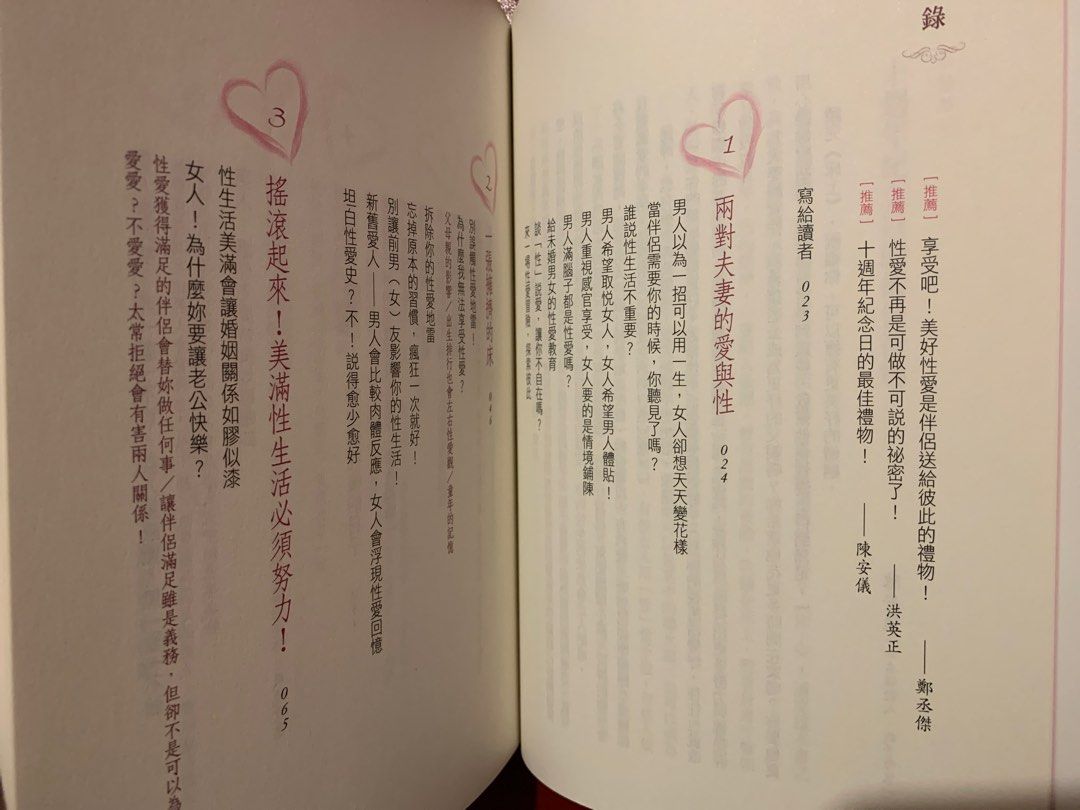 錄
[推薦] 享受吧！美好性愛是伴侶送給彼此的禮物！ ——鄭丞傑
[推薦] 性愛不再是可做不可說的祕密了！ ——洪英正
[推薦] 十週年紀念日的最佳禮物！ ——陳安儀
寫給讀者 023
1 兩對夫妻的愛與性 024
男人以為一招可以用一生，女人卻想天天變花樣
當伴侶需要你的時候，你聽見了嗎？
誰說性生活不重要？
男人希望取悅女人，女人希望男人體貼！
男人重視感官享受，女人要的是情境鋪陳
男人滿腦子都是性愛嗎？
給未婚男女的性愛教育
談「性」說愛，讓你不自在嗎？
來一場性愛冒險，探索彼此
2 一張擁擠的床 046
別誤觸性愛地雷！
為什麼我無法享受性愛？
父母親的影響／出生排行也會左右性愛觀／童年的記憶
拆除你的性愛地雷
忘掉原本的習慣，瘋狂一次就好！
別讓前男（女）友影響你的性生活！
新舊愛人——男人會比較肉體反應，女人會浮現性愛回憶
坦白性愛史？不！說得愈少愈好
3 搖滾起來！美滿性生活必須努力！ 065
性生活美滿會讓婚姻關係如膠似漆
女人！為什麼妳要讓老公快樂？
性愛獲得滿足的伴侶會替妳做任何事／讓伴侶滿足雖是義務，但卻不是可以為
愛愛？不愛愛？太常拒絕會有害兩人關係！